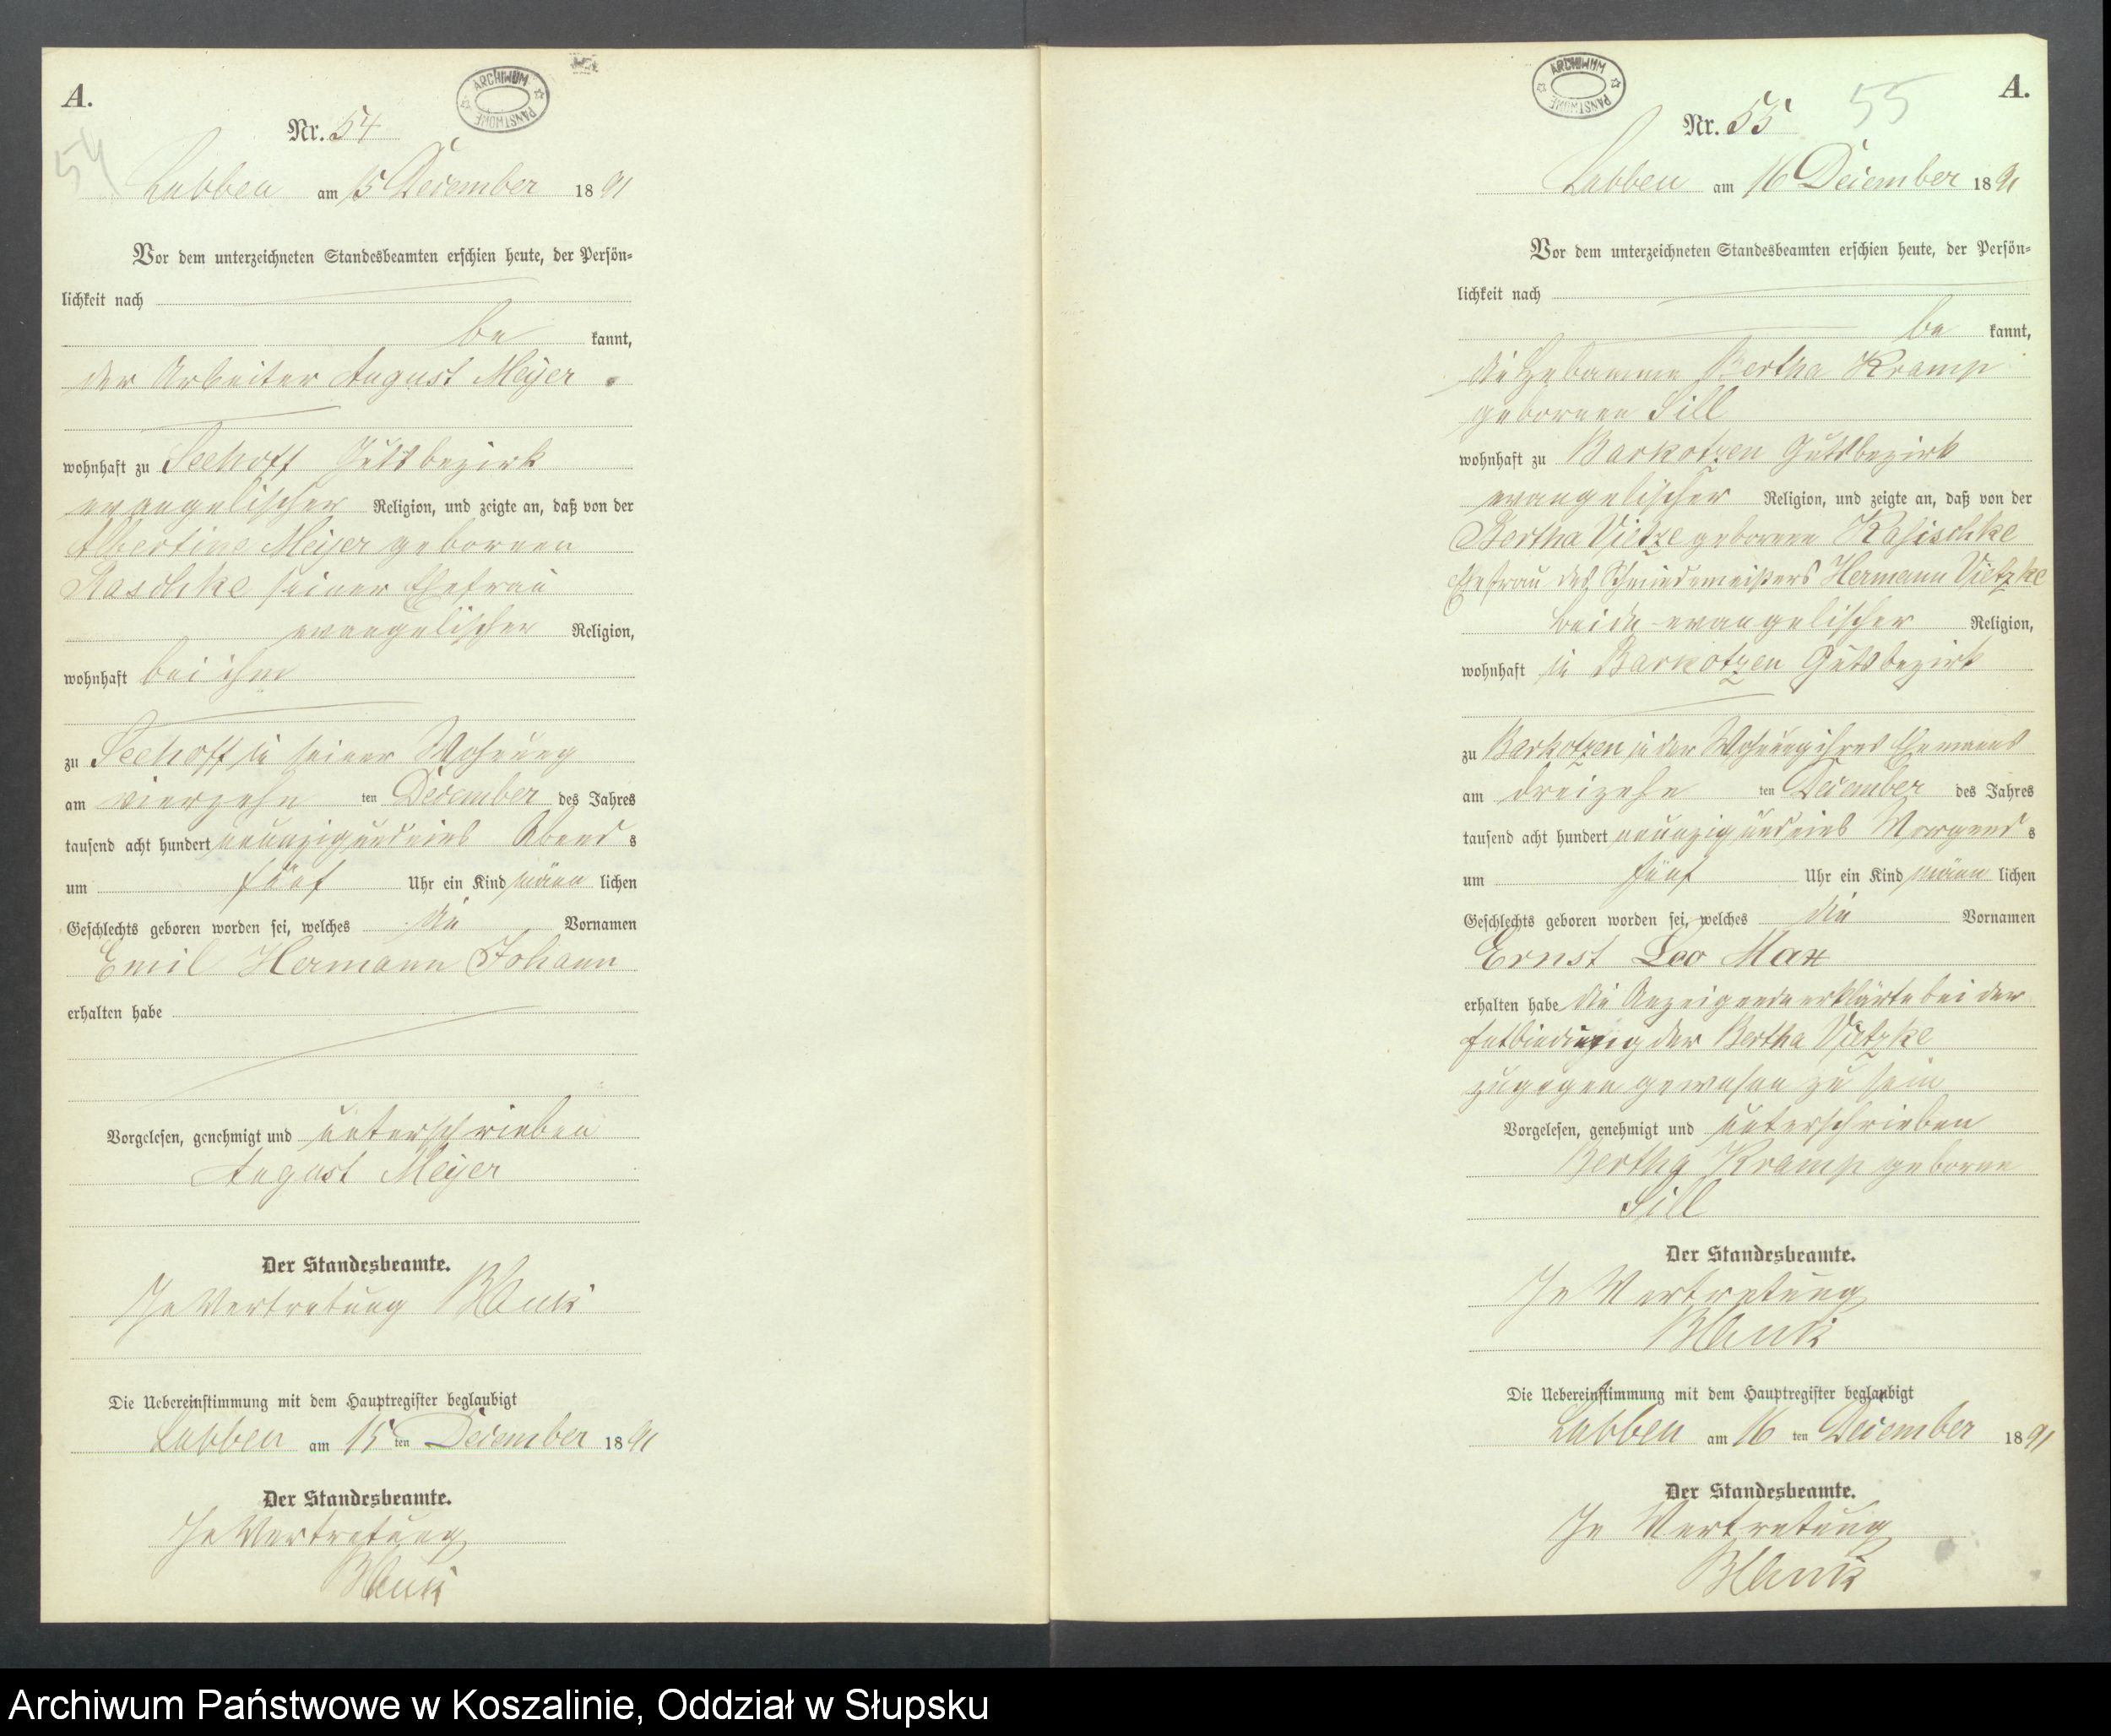 A.
ARCHIWUM PAŃSTWOWE
Nr. 54
54
Labben am 15 December 1891
Vor dem unterzeichneten Standesbeamten erschien heute, der Persön-
lichkeit nach
be kannt,
der Arbeiter August Meyer
wohnhaft zu Seehoff Gutsbezirk
evangelischer Religion, und zeigte an, daß von der
Albertine Meyer geborenen
Raschke seiner Ehefrau
evangelischer Religion,
wohnhaft bei ihm
zu Seehoff in seiner Wohnung
am vierzehn ten December des Jahres
tausend acht hundert neunzig und eins Abend s
um fünf Uhr ein Kind männ lichen
Geschlechts geboren worden sei, welches die Vornamen
Emil Hermann Johann
erhalten habe
Vorgelesen, genehmigt und unterschrieben
August Meyer
Der Standesbeamte.
In Vertretung
Die Uebereinstimmung mit dem Hauptregister beglaubigt
Labben am 15 ten December 1891
Der Standesbeamte.
In Vertretung
A.
ARCHIWUM PAŃSTWOWE
55
Nr. 55
Labben am 16 December 1891
Vor dem unterzeichneten Standesbeamten erschien heute, der Persön-
lichkeit nach
be kannt,
die Hebamme Bertha Kramp
geborenen Sill
wohnhaft zu Barkotzen Gutsbezirk
evangelischer Religion, und zeigte an, daß von der
Bertha Vietzke geborene
Ehefrau des Schmiedemeisters Hermann Vietzke
beide evangelischer Religion,
wohnhaft in Barkotzen Gutsbezirk
zu Barkotzen in der Wohnung ihres Ehemanns
am dreizehn ten December des Jahres
tausend acht hundert neunzig und eins Morgend s
um fünf Uhr ein Kind männ lichen
Geschlechts geboren worden sei, welches die Vornamen
Ernst Leo Max
erhalten habe die Anzeigende erklärte bei der
Entbindung der Bertha Vietzke
zugegen gewesen zu sein
Vorgelesen, genehmigt und unterschrieben
Bertha Kramp geborne
Sill
Der Standesbeamte.
In Vertretung
Die Uebereinstimmung mit dem Hauptregister beglaubigt
Labben am 16 ten December 1891
Der Standesbeamte.
In Vertretung
Archiwum Państwowe w Koszalinie, Oddział w Słupsku